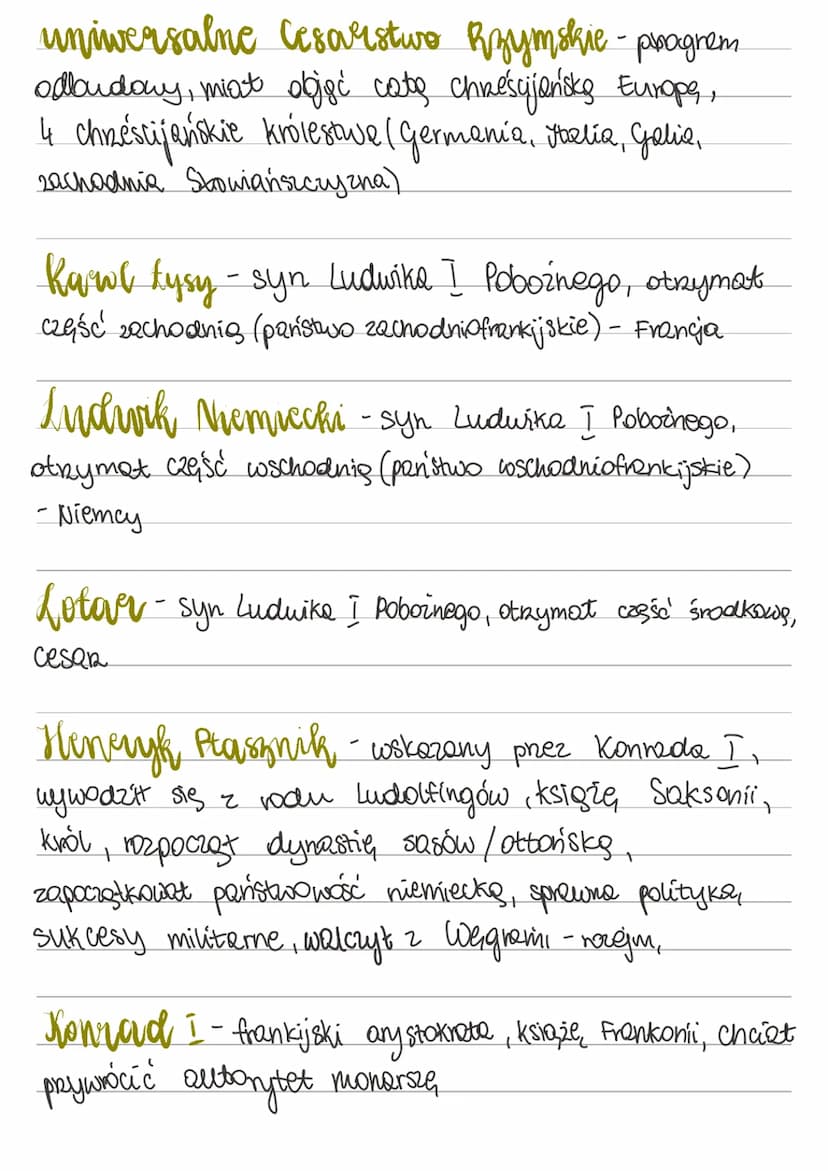 uniwersalne Cesarstwo Rzymskie - program
odbudowy, miał objąć całą chrześcijańską Europę,
4 chrześcijańskie królestwa (Germania, Italia, Galia,
zachodnia Słowiańszczyzna)
Karol Łysy - syn Ludwika I Pobożnego, otrzymał
część zachodnią (państwo zachodniofrankijskie) - Francja
Ludwik Niemiecki - syn Ludwika I Pobożnego,
otrzymał część wschodnią (państwo wschodniofrankijskie)
- Niemcy
Lotar - syn Ludwika I Pobożnego, otrzymał część środkową,
cesarz
Henryk Ptasznik - wskazany przez Konrada I,
wywodził się z rodu Ludolfingów, książę Saksonii,
król, rozpoczął dynastię sasów/ottońską,
zapoczątkował państwowość niemiecką, sprawna polityka,
sukcesy militarne, walczył z Węgrami - rozejm,
Konrad I - frankijski arystokrata, książę Frankonii, chciał
przywrócić autorytet monarszą